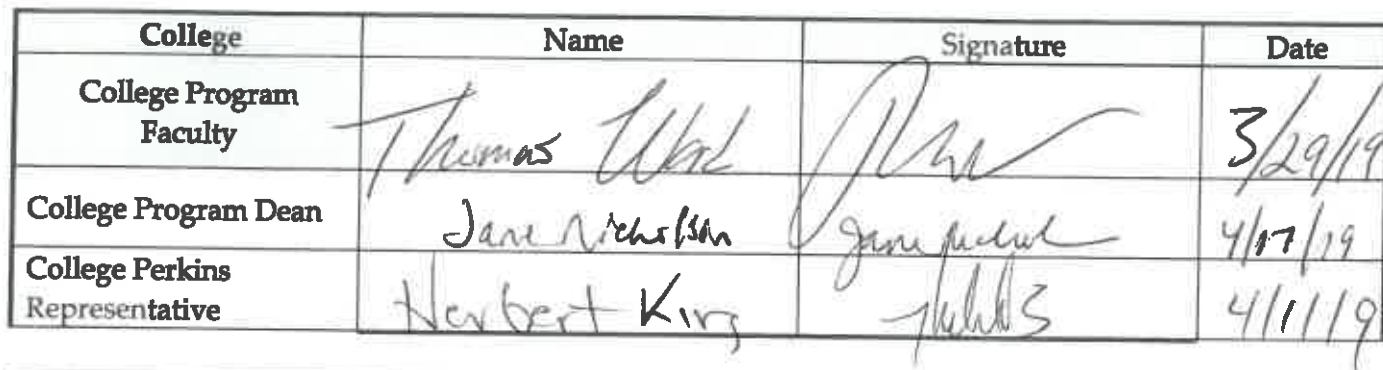 College Name Signature Date
College Program
Faculty
Thomas 3/29/19
College Program Dean Jane Nicholson 4/17/19
College Perkins
Representative
Herbert King 4/1/19